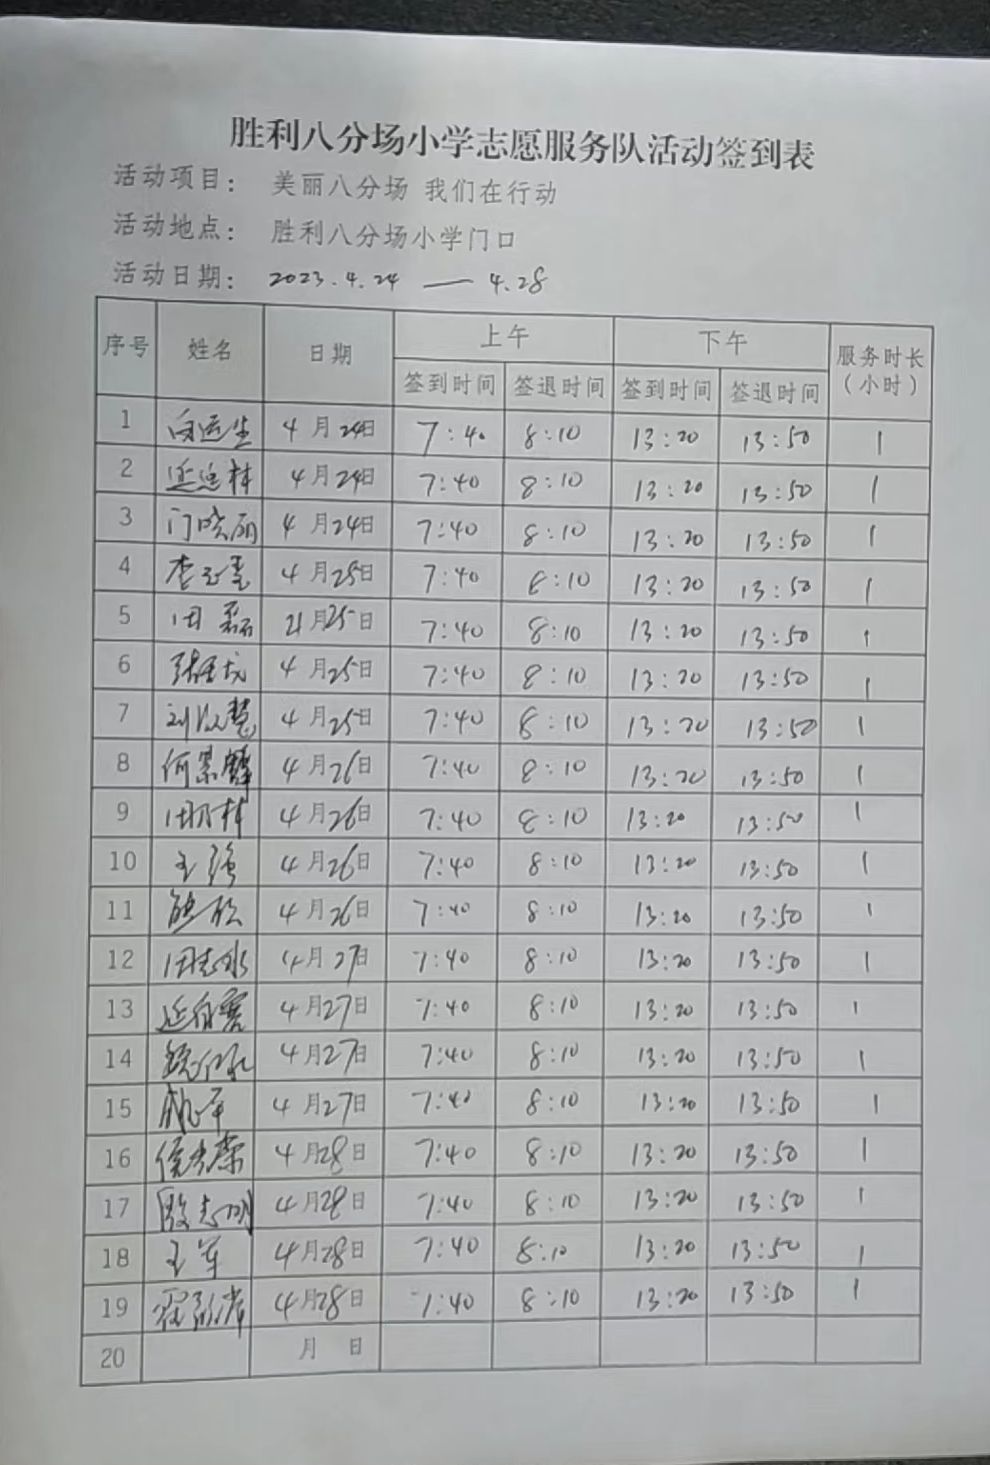 胜利八分场小学志愿服务队活动签到表
活动项目： 美丽八分场 我们在行动
活动地点： 胜利八分场小学门口
活动日期： 2023.4.24 — 4.28
序号 姓名 日期 上午 下午 服务时长（小时）
签到时间 签退时间 签到时间 签退时间
1 4月24日 7:40 8:10 13:20 13:50 1
2 4月24日 7:40 8:10 13:20 13:50 1
3 门晓丽 4月24日 7:40 8:10 13:20 13:50 1
4 4月25日 7:40 8:10 13:20 13:50 1
5 田磊 4月25日 7:40 8:10 13:20 13:50 1
6 4月25日 7:40 8:10 13:20 13:50 1
7 4月25日 7:40 8:10 13:20 13:50 1
8 何景麟 4月26日 7:40 8:10 13:20 13:50 1
9 4月26日 7:40 8:10 13:20 13:50 1
10 王强 4月26日 7:40 8:10 13:20 13:50 1
11 4月26日 7:40 8:10 13:20 13:50 1
12 田志水 4月27日 7:40 8:10 13:20 13:50 1
13 4月27日 7:40 8:10 13:20 13:50 1
14 4月27日 7:40 8:10 13:20 13:50 1
15 4月27日 7:40 8:10 13:20 13:50 1
16 4月28日 7:40 8:10 13:20 13:50 1
17 殷志明 4月28日 7:40 8:10 13:20 13:50 1
18 王军 4月28日 7:40 8:10 13:20 13:50 1
19 4月28日 7:40 8:10 13:20 13:50 1
20 月 日